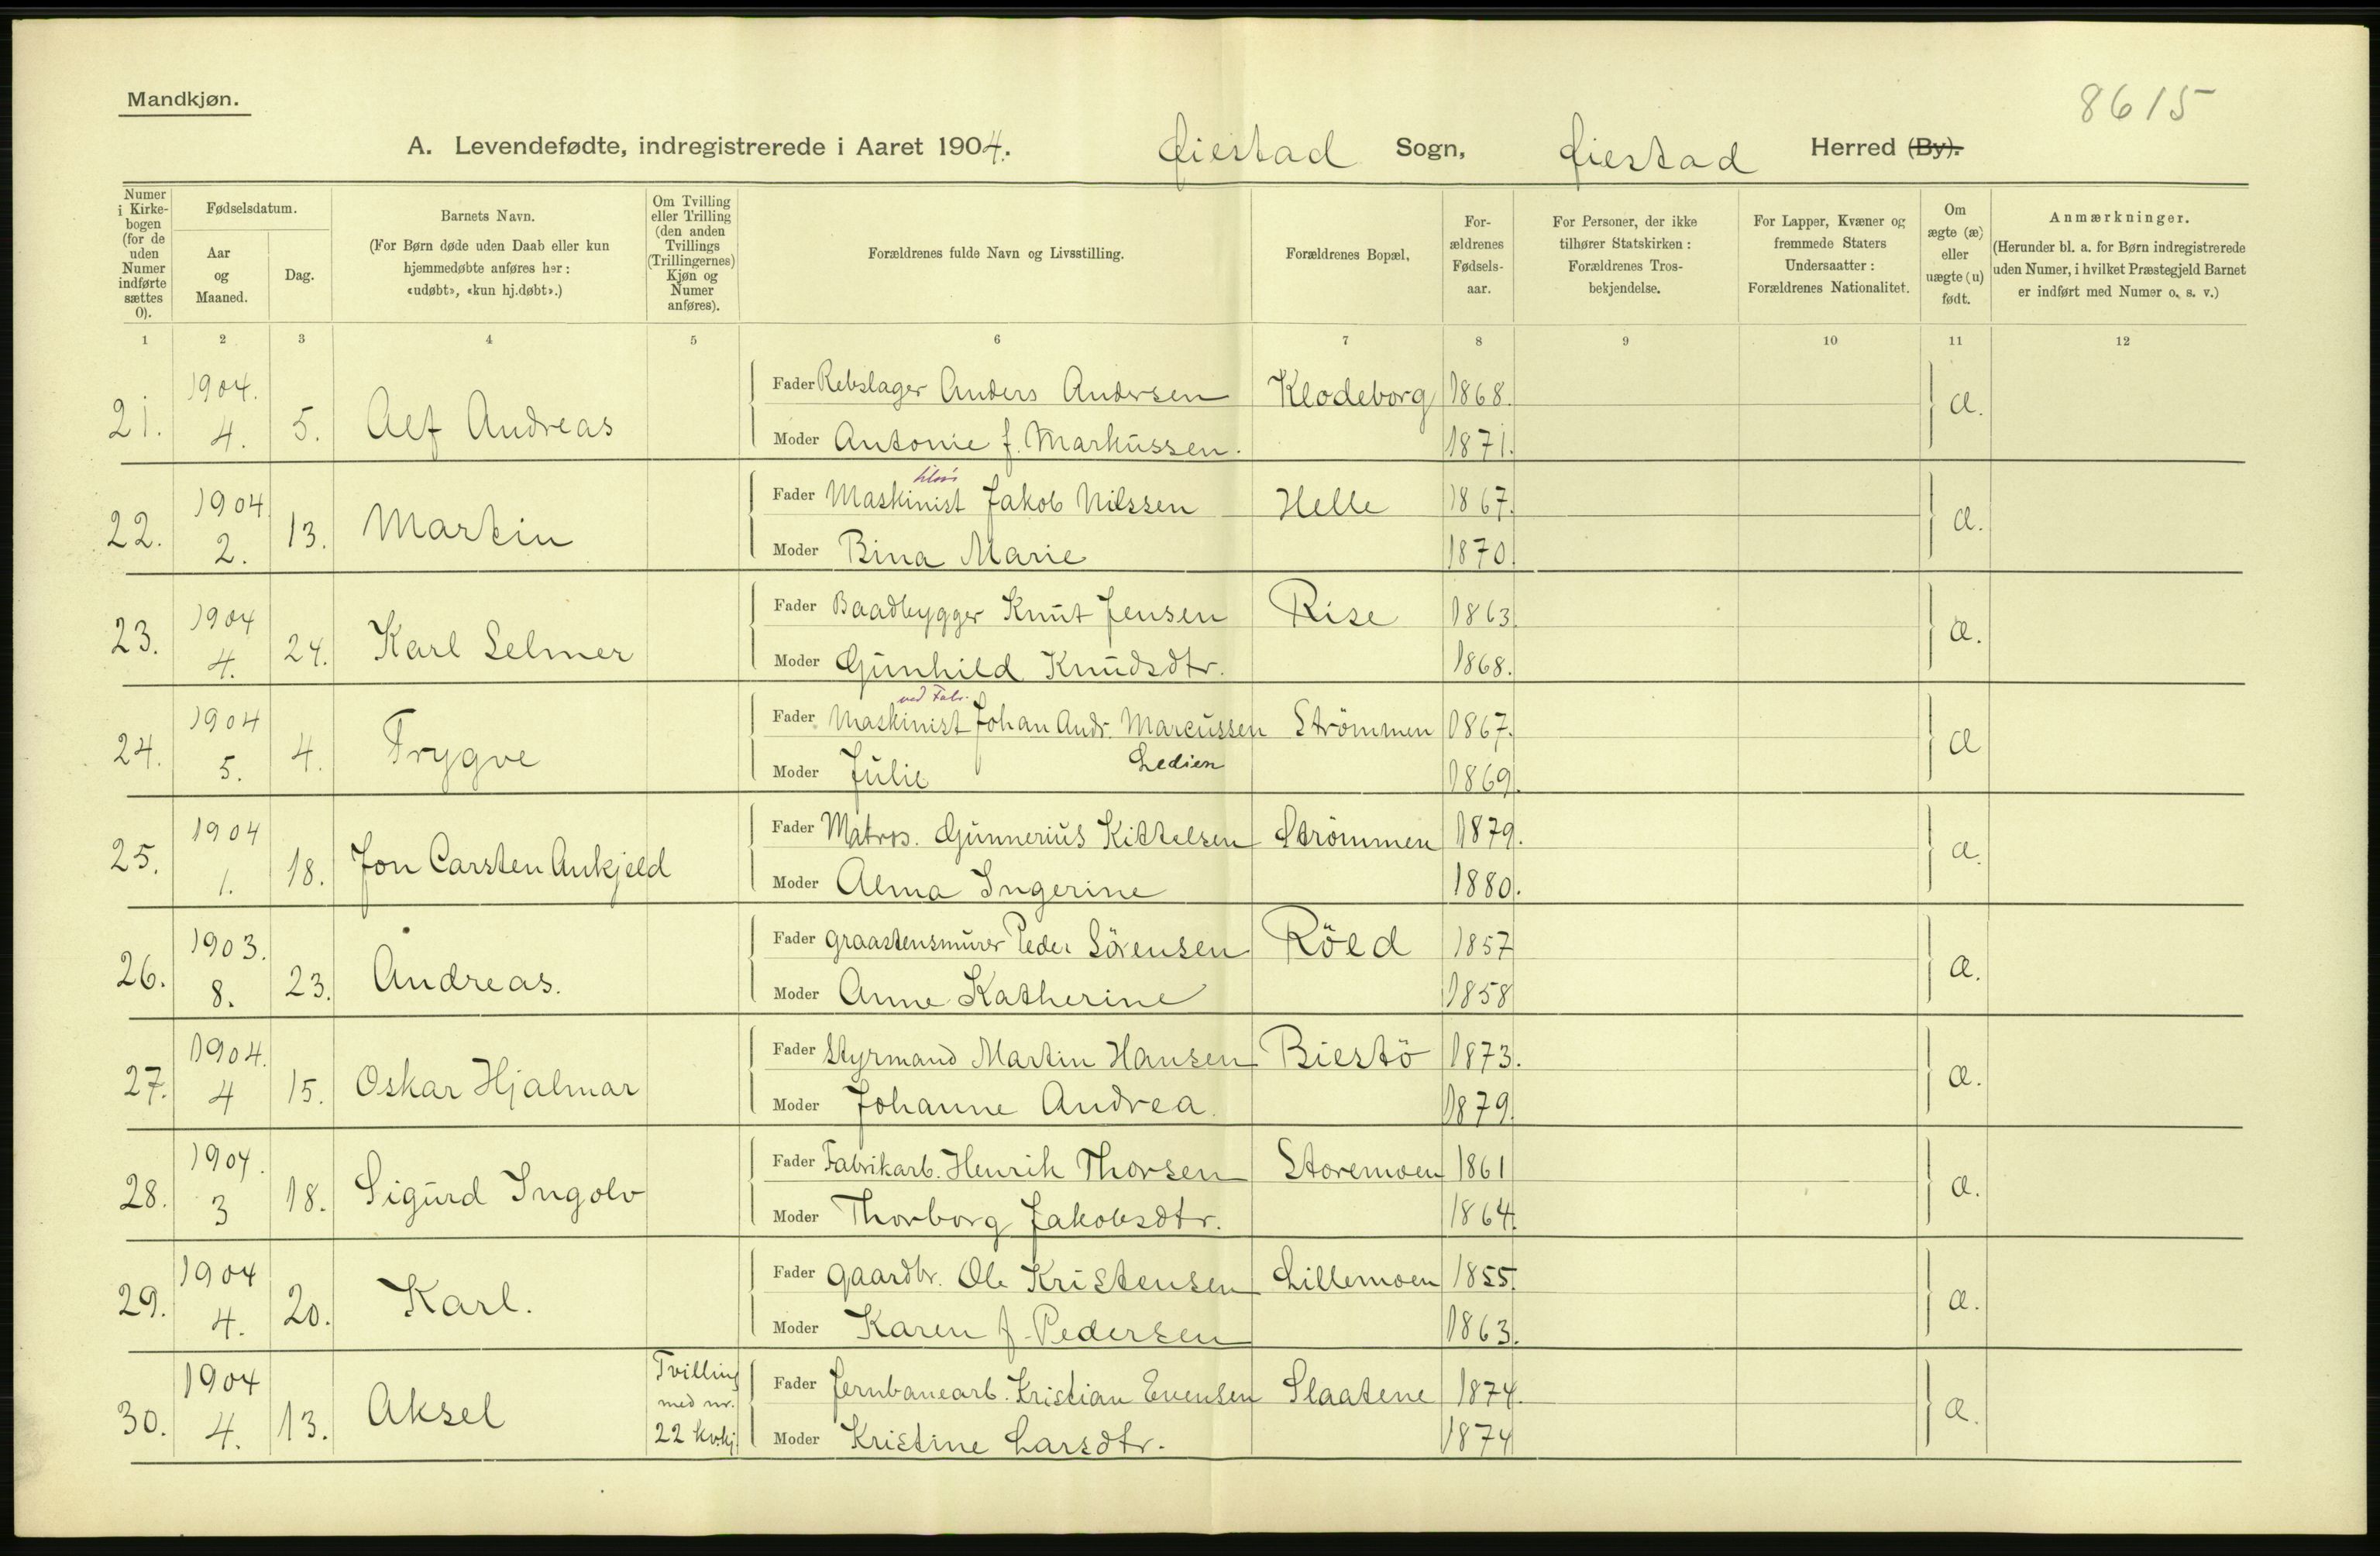 Mandkjøn.
8615
A. Levendefødte, indregistrerede i Aaret 1904. Øiestad Sogn, Øiestad Herred (By).
Numer i Kirkebogen (for de uden Numer indførte sættes 0).
Fødselsdatum.
Aar og Maaned.
Dag.
Barnets Navn.
(For Børn døde uden Daab eller kun hjemmedøbte anføres her: «udøbt», «kun hj.døbt».)
Om Tvilling eller Trilling (den anden Tvillings (Trillingernes) Kjøn og Numer anføres).
Forældrenes fulde Navn og Livsstilling.
Forældrenes Bopæl,
For-ældrenes Fødsels-aar.
For Personer, der ikke tilhører Statskirken: Forældrenes Tros-bekjendelse.
For Lapper, Kvæner og fremmede Staters Undersaatter: Forældrenes Nationalitet.
Om ægte (æ) eller uægte (u) født.
Anmærkninger.
(Herunder bl. a. for Børn indregistrerede uden Numer, i hvilket Præstegjeld Barnet er indført med Numer o. s. v.)
1 2 3 4 5 6 7 8 9 10 11 12
21. 1904. 4. 5. Alf Andreas Fader Rebslager Anders Andersen Klodeborg 1868. æ.
Moder Antonie f. Markussen. 1871.
22. 1904 2. 13. Martin Fader Maskinist Jakob Nilssen Helle 1867. æ.
Moder Bina Marie 1870.
23. 1904 4. 24. Karl Selmer Fader Baadbygger Knut Jensen Rise 1863. æ.
Moder Gunhild Knudsdtr. 1868.
ved Fabr.
24. 1904 5. 4. Trygve Fader Maskinist Johan Andr. Marcussen Strömmen 1867. æ
Ledien
Moder Julie 1869.
25. 1904 1. 18. Jon Carsten Ankjeld Fader Matros. Gunnerius Kittelsen Strömmen 1879. æ.
Moder Alma Ingerine 1880.
26. 1903. 8. 23. Andreas. Fader Graastensmurer Peder Sörensen Röed 1857 æ.
Moder Anne Katherine 1858
27. 1904. 4 15. Oskar Hjalmar Fader Styrmand Martin Hansen Biestö 1873. æ.
Moder Johanne Andrea. 1879.
28. 1904. 3 18. Sigurd Ingolv Fader Fabrikarb. Henrik Thorsen Storemoen 1861 æ.
Moder Thorborg Jakobsdtr. 1864.
29. 1904 4. 20. Karl. Fader Gaardbr. Ole Kristensen Lillemoen 1855. æ.
Moder Karen f. Pedersen 1863.
30. 1904 4. 13. Aksel Tvilling med nr. 22 kv.kj. Fader Jernbanearb. Kristian Evensen Slaatene 1874. æ.
Moder Kristine Larsdtr. 1874